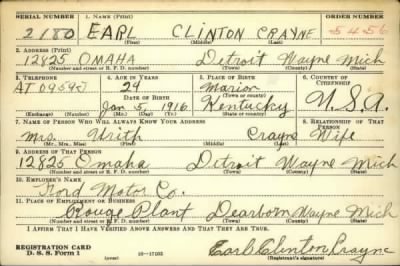 SERIAL NUMBER 1. NAME (Print) ORDER NUMBER
2180 EARL CLINTON CRAYNE 5456
(First) (Middle) (Last)
2. ADDRESS (Print)
12825 OMAHA Detroit Wayne Mich
(Number and street or R. F. D. number) (Town) (County) (State)
3. TELEPHONE 4. AGE IN YEARS 5. PLACE OF BIRTH 6. COUNTRY OF CITIZENSHIP
24 Marion
DATE OF BIRTH (Town or county)
Jan 5, 1916 Kentucky U.S.A.
(Exchange) (Number) (Mo.) (Day) (Yr.) (State or country)
7. NAME OF PERSON WHO WILL ALWAYS KNOW YOUR ADDRESS 8. RELATIONSHIP OF THAT PERSON
Mrs. Urith Crayne Wife
(Mr., Mrs., Miss) (First) (Middle) (Last)
9. ADDRESS OF THAT PERSON
12825 Omaha Detroit Wayne Mich
(Number and street or R. F. D. number) (Town) (County) (State)
10. EMPLOYER'S NAME
Ford Motor Co.
11. PLACE OF EMPLOYMENT OR BUSINESS
Rouge Plant Dearborn Wayne Mich
(Number and street or R. F. D. number) (Town) (County) (State)
I AFFIRM THAT I HAVE VERIFIED ABOVE ANSWERS AND THAT THEY ARE TRUE.
REGISTRATION CARD
D. S. S. Form 1 (over) Earl Clinton Crayne
(Registrant's signature)